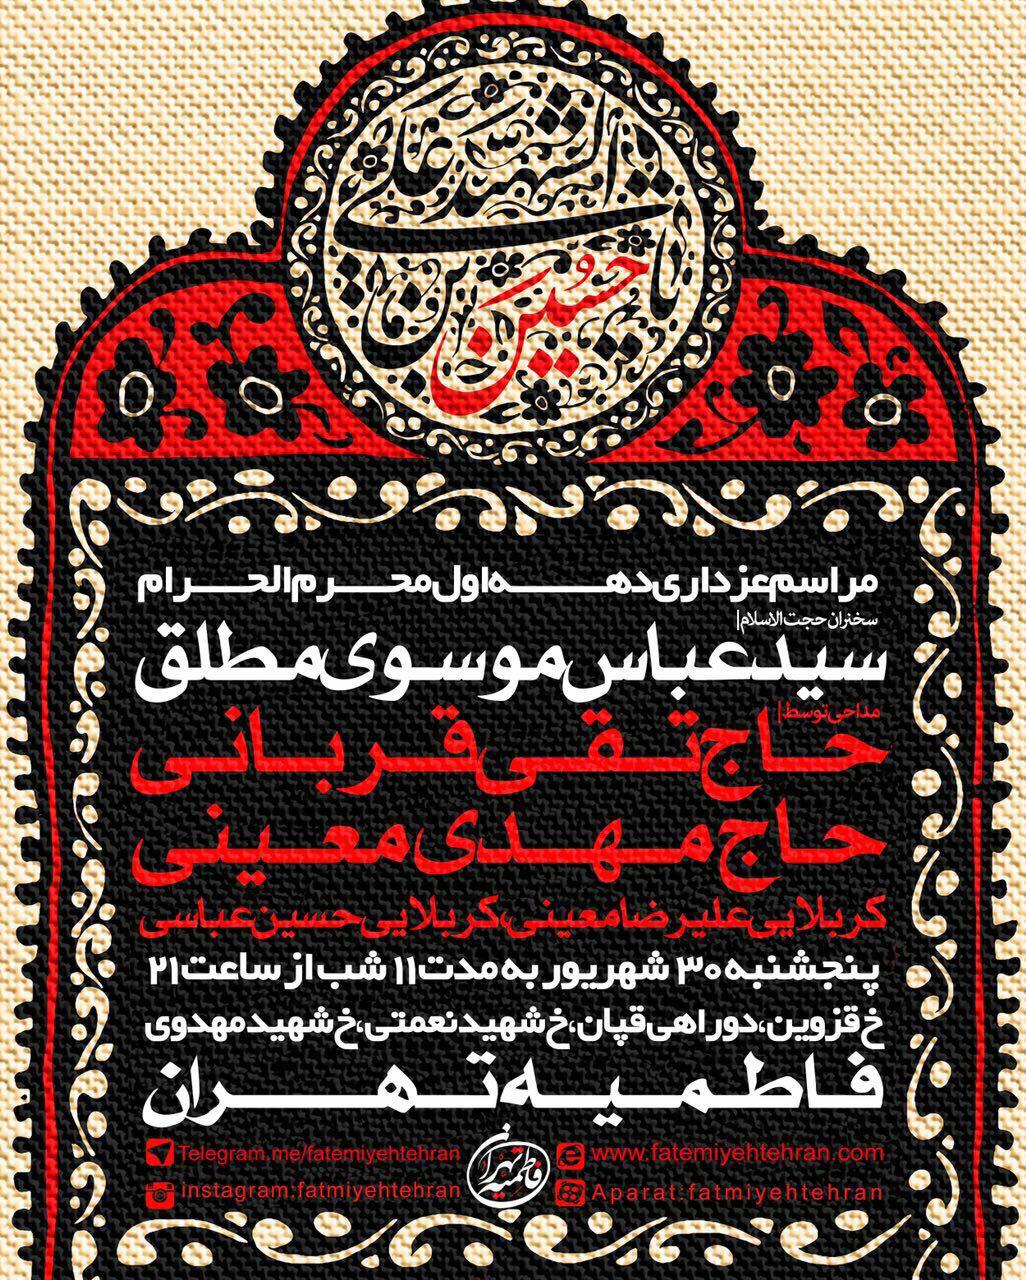 حسین
مراسم عزداری دهه اول محرم الحرام
سخنران حجت الاسلام|
سید عباس موسوی مطلق
مداحی توسط|
حاج تقی قربانی
حاج مهدی معینی
کربلایی علیرضا معینی، کربلایی حسین عباسی
پنجشنبه ۳۰ شهریور به مدت ۱۱ شب از ساعت ۲۱
خ قزوین، دوراهی قپان، خ شهید نعمتی، خ شهید مهدوی
فاطمیه تهران
Telegram.me/fatemiyehtehran
فاطمیه تهران
www.fatemiyehtehran.com
instagram:fatmiyehtehran
Aparat:fatmiyehtehran